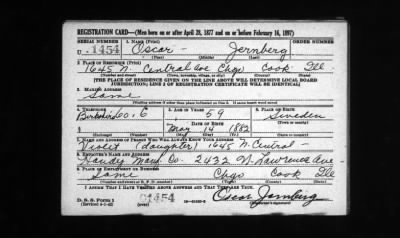 REGISTRATION CARD—(Men born on or after April 28, 1877 and on or before February 16, 1897)
SERIAL NUMBER 1. NAME (Print) ORDER NUMBER
U 1454 Oscar - Jernberg
(First) (Middle) (Last)
2. PLACE OF RESIDENCE (Print)
1645 N Central Ave Chgo Cook Ill
(Number and street) (Town, township, village, or city) (County) (State)
[THE PLACE OF RESIDENCE GIVEN ON THE LINE ABOVE WILL DETERMINE LOCAL BOARD
JURISDICTION; LINE 2 OF REGISTRATION CERTIFICATE WILL BE IDENTICAL]
3. MAILING ADDRESS
Same
(Mailing address if other than place indicated on line 2. If same insert word same)
4. TELEPHONE 5. AGE IN YEARS 6. PLACE OF BIRTH
59 Sweden
DATE OF BIRTH (Town or county)
Mar 14 1882
(Exchange) (Number) (Mo.) (Day) (Yr.) (State or country)
7. NAME AND ADDRESS OF PERSON WHO WILL ALWAYS KNOW YOUR ADDRESS
Violet (daughter) 1645 N. Central -
8. EMPLOYER'S NAME AND ADDRESS
Handy Man Co - 2432 Lawrence Ave -
9. PLACE OF EMPLOYMENT OR BUSINESS
Same Chgo Cook Ill
(Number and street or R. F. D. number) (Town) (County) (State)
I AFFIRM THAT I HAVE VERIFIED ABOVE ANSWERS AND THAT THEY ARE TRUE.
D. S. S. Form 1
(Revised 4-1-42) 1454 Oscar Jernberg